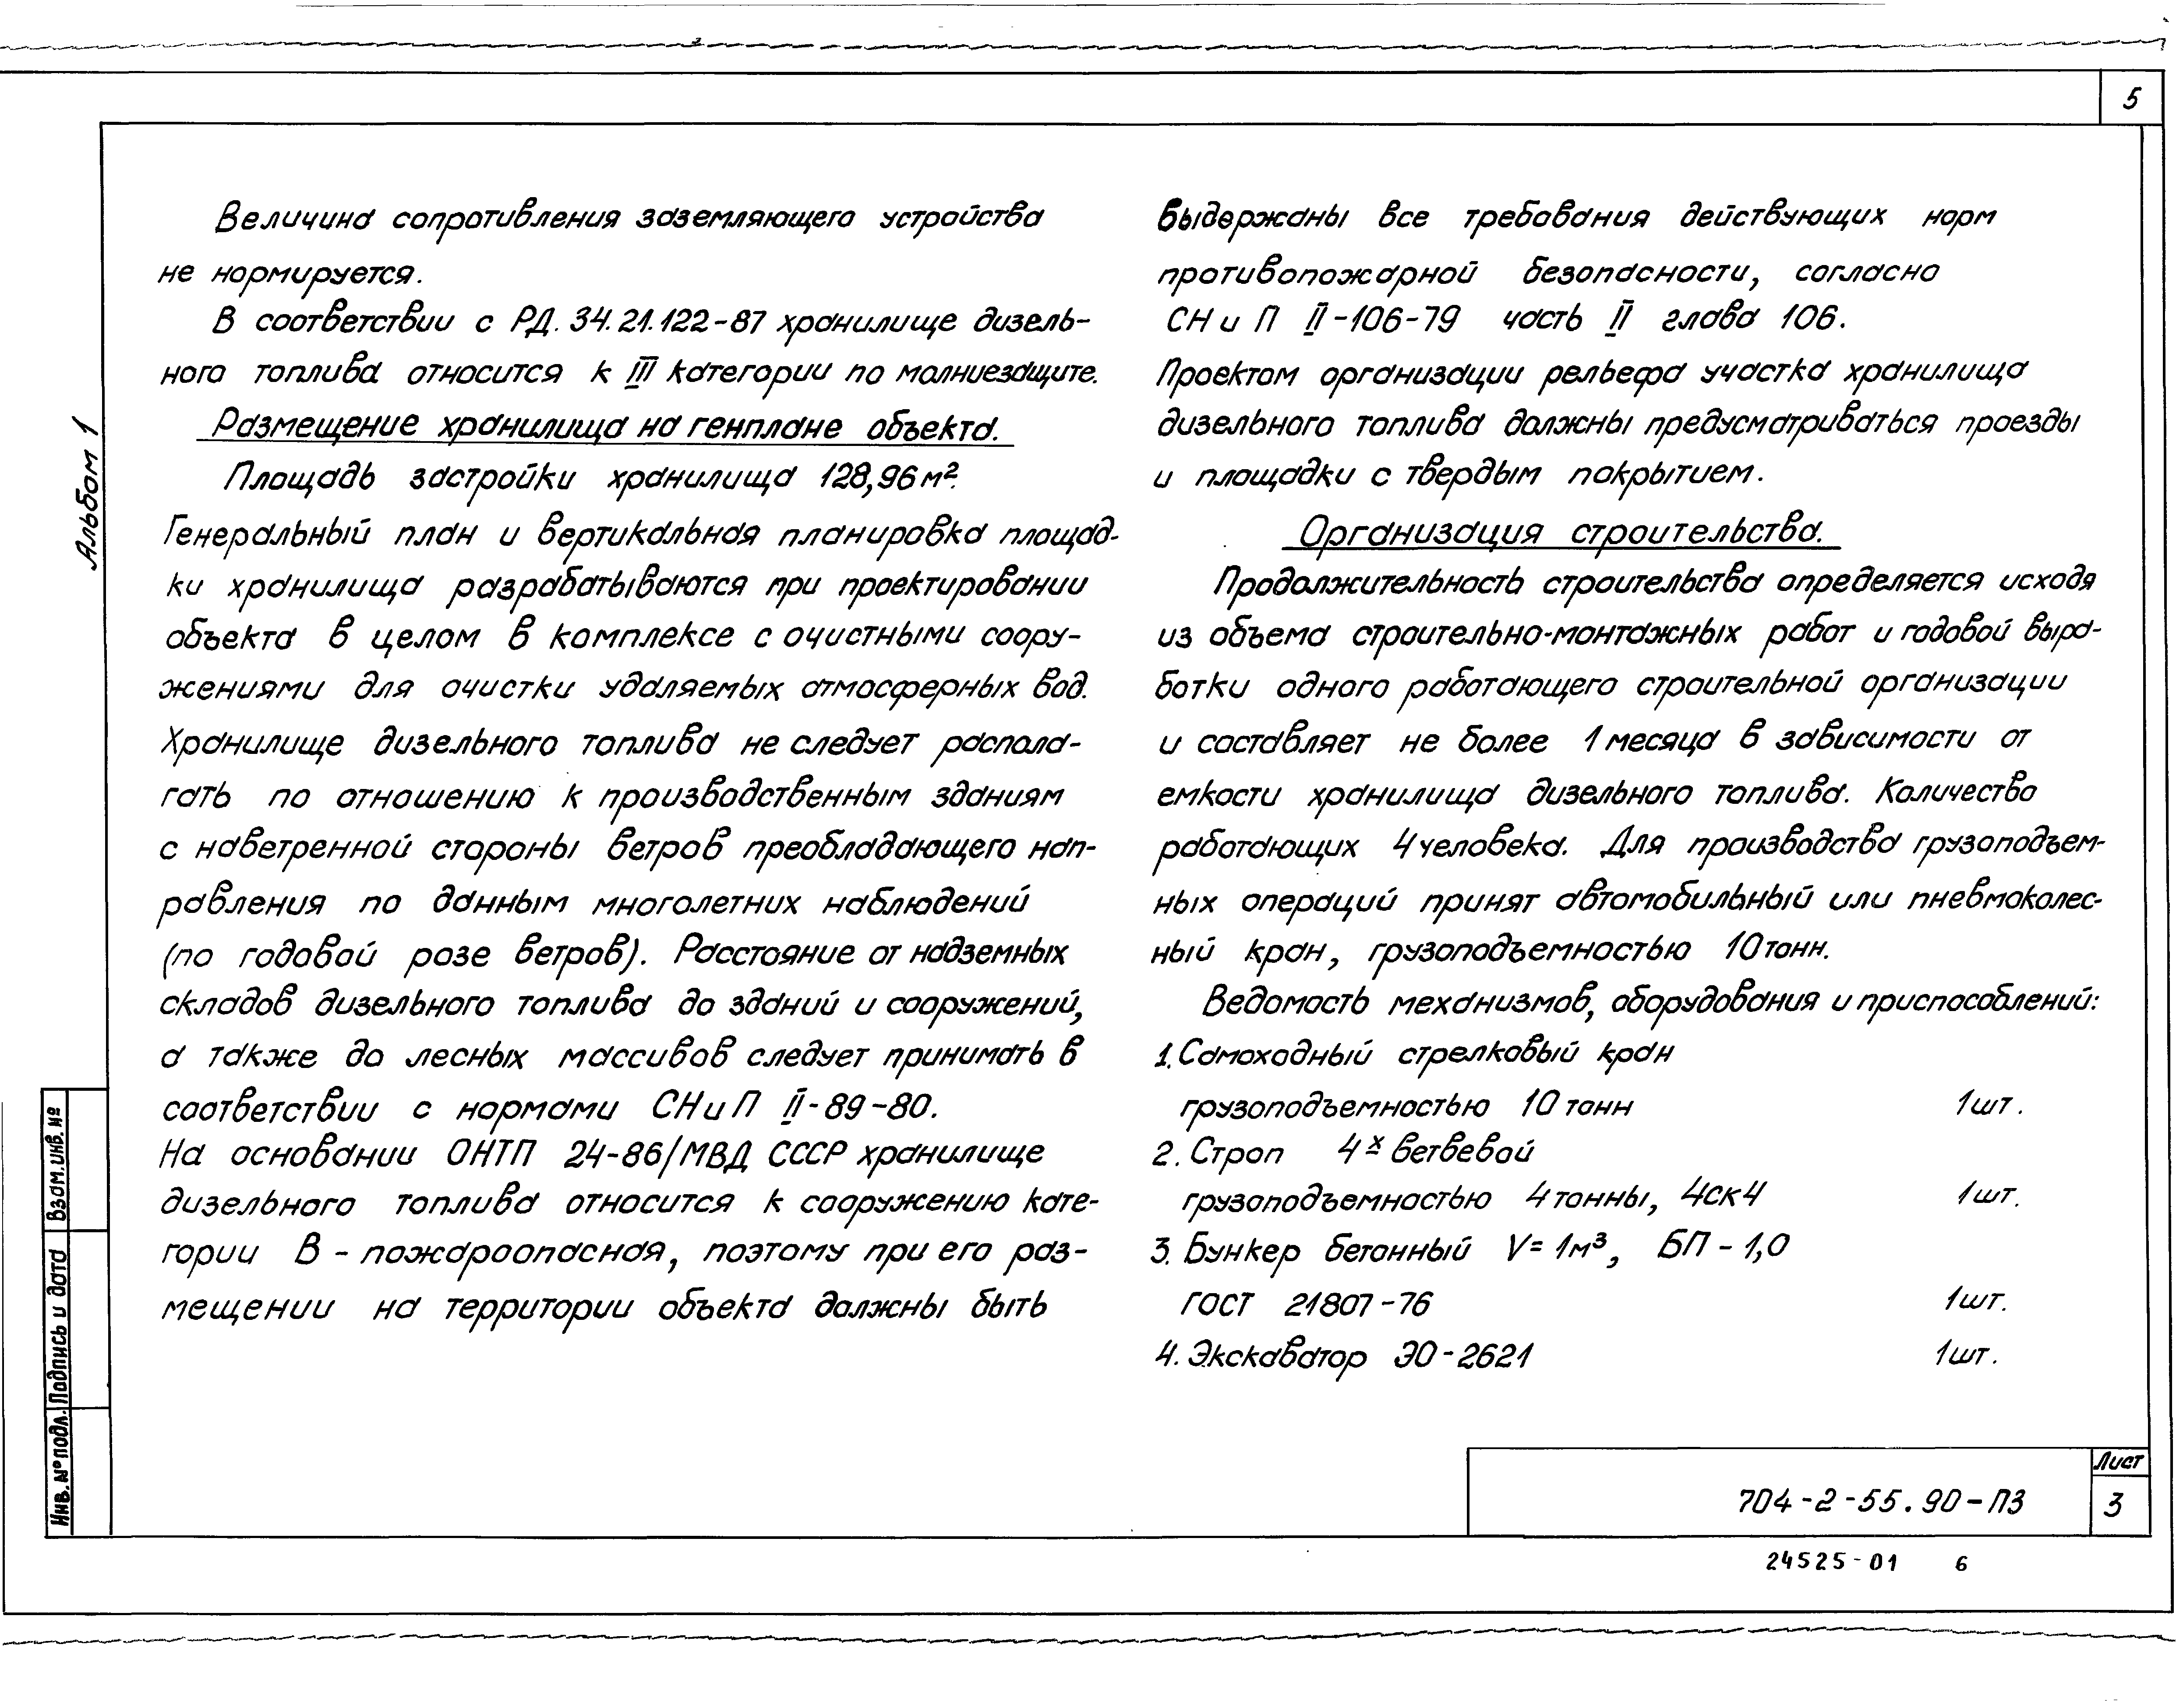 5
Альбом 1
Величина сопротивления заземляющего устройства
не нормируется.
В соответствии с РД. 34.21.122-87 хранилище дизель-
ного топлива относится к III категории по молниезащите.
Размещение хранилища на генплане объекта.
Площадь застройки хранилища 128,96 м².
Генеральный план и вертикальная планировка площад-
ки хранилища разрабатываются при проектировании
объекта в целом в комплексе с очистными соору-
жениями для очистки удаляемых атмосферных вод.
Хранилище дизельного топлива не следует распола-
гать по отношению к производственным зданиям
с наветренной стороны ветров преобладающего нап-
равления по данным многолетних наблюдений
(по годовой розе ветров). Расстояние от надземных
складов дизельного топлива до зданий и сооружений,
а также до лесных массивов следует принимать в
соответствии с нормами СНиП II-89-80.
На основании ОНТП 24-86/МВД СССР хранилище
дизельного топлива относится к сооружению кате-
гории В - пожароопасная, поэтому при его раз-
мещении на территории объекта должны быть
выдержаны все требования действующих норм
противопожарной безопасности, согласно
СНиП II-106-79 часть II глава 106.
Проектом организации рельефа участка хранилища
дизельного топлива должны предусматриваться проезды
и площадки с твердым покрытием.
Организация строительства.
Продолжительность строительства определяется исходя
из объема строительно-монтажных работ и годовой выра-
ботки одного работающего строительной организации
и составляет не более 1 месяца в зависимости от
емкости хранилища дизельного топлива. Количество
работающих 4 человека. Для производства грузоподъем-
ных операций принят автомобильный или пневмоколес-
ный кран, грузоподъемностью 10 тонн.
Ведомость механизмов, оборудования и приспособлений:
1. Самоходный стрелковый кран
грузоподъемностью 10 тонн 1шт.
2. Строп 4х ветвевой
грузоподъемностью 4 тонны, 4СК4 1шт.
3. Бункер бетонный V=1м³, БП-1,0
ГОСТ 21807-76 1шт.
4. Экскаватор ЭО-2621 1шт.
Взам. инв. №
Подпись и дата
Инв. № подл.
704-2-55.90-ПЗ
Лист
3
24525-01 6